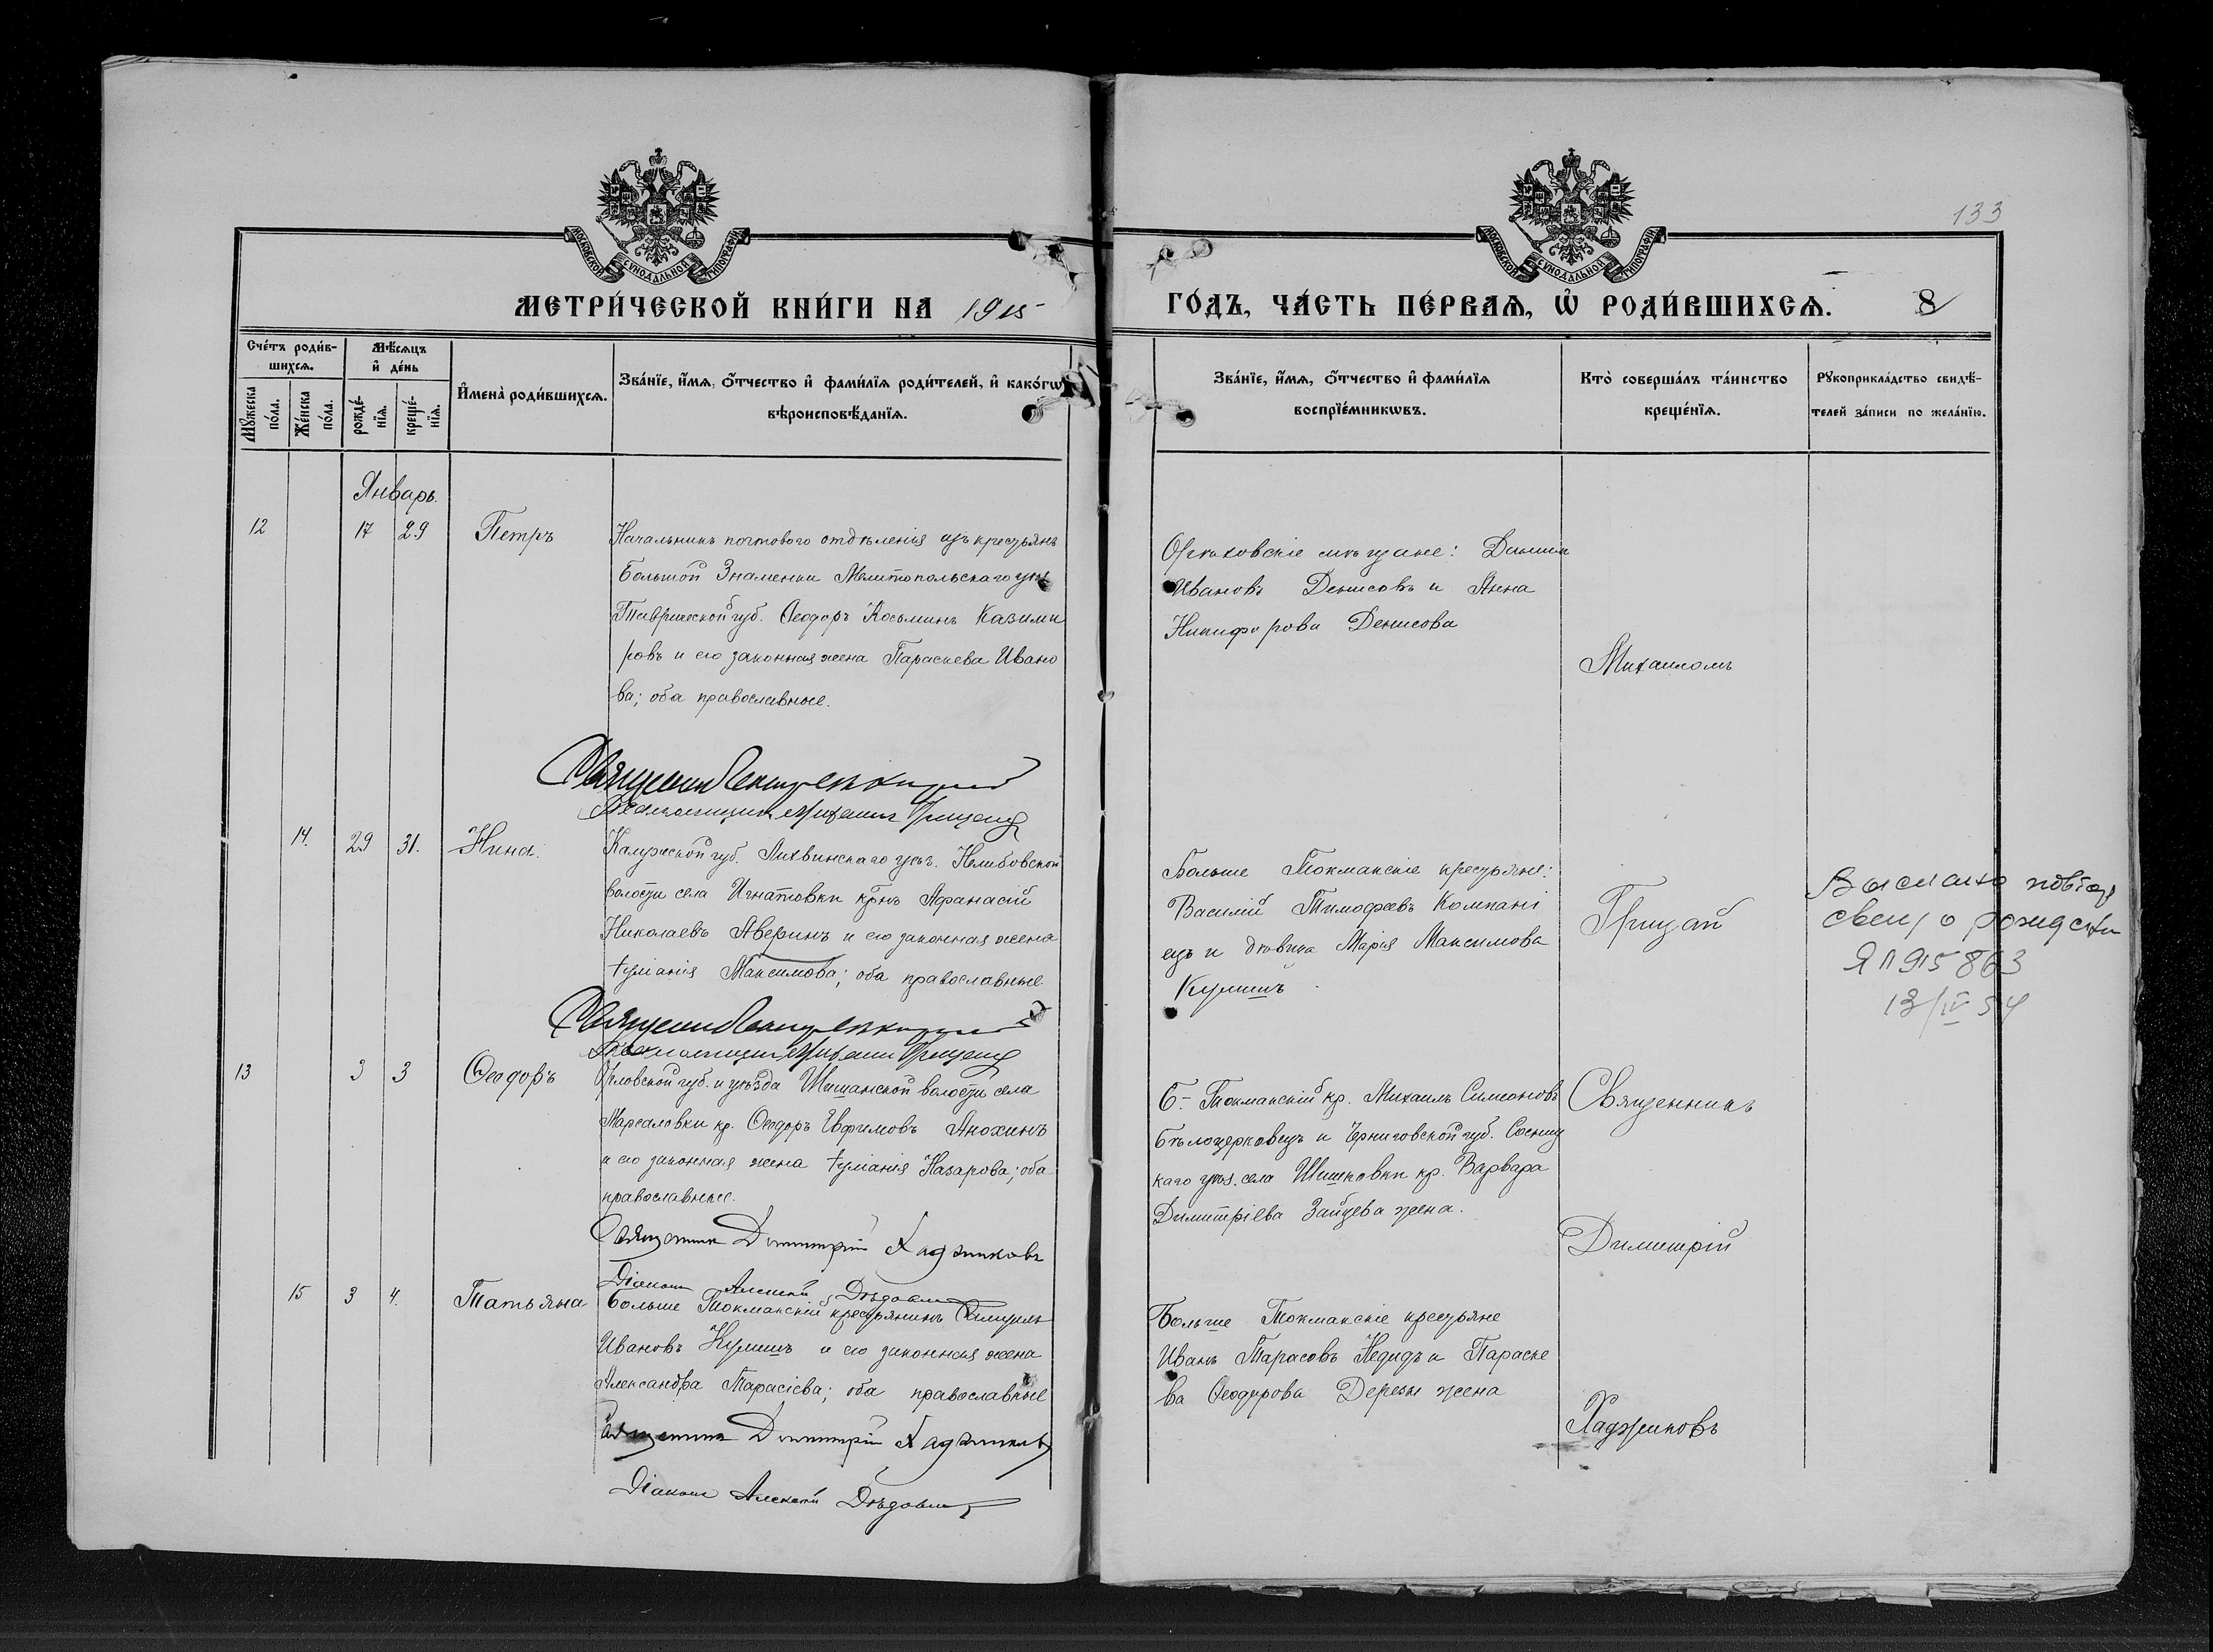 133
МОСКОВСКОЙ СѴНОДАЛЬНОЙ ТИПОГРАФІИ
МОСКОВСКОЙ СѴНОДАЛЬНОЙ ТИПОГРАФІИ
МЕТРИ́ЧЕСКОЙ КНИ́ГИ НА 1915
ГО́ДЪ, ЧА́СТЬ ПЕ́РВАѦ, Ѿ РОДИ́ВШИХСѦ. 8
Сче́тъ роди́в-
шихсѧ.
Мꙋ́жеска по́ла.
Же́нска по́ла.
Мѣ́сѧцъ
и҆ де́нь
рожде́-
нїѧ.
креще́-
нїѧ.
И҆мена̀ роди́вшихсѧ.
Зва́нїе, и҆́мѧ, ѻ҆́тчество и҆ фами́лїѧ роди́телей, и҆ како́гѡ
вѣроисповѣ́данїѧ.
Зва́нїе, и҆́мѧ, ѻ҆́тчество и҆ фами́лїѧ
воспрїе́мникѡвъ.
Кто̀ соверша́лъ та́инство
креще́нїѧ.
Рꙋкоприкла́дство свидѣ́-
телей за́писи по жела́нїю.
Январь.
12 17 29 Петръ
Начальникъ почтоваго отдѣленія изъ крестьянъ
Большой Знаменки Мелитопольскаго уѣз
Таврической губ. Ѳеодоръ Косьминъ Казими
ровъ и его законная жена Параскева Ивано
ва; оба православные.
Псаломщикъ Михаилъ Грицай
Орѣховскіе мѣщане:
Ивановъ Денисовъ и Анна
Никифорова Денисова
Михаиломъ
14. 29 31. Нина.
Калужской губ. Лихвинскаго уѣз.
волости села Игнатовки крнъ Афанасій
Николаевъ Аверинъ и его законная жена
Іуліанія Максимова; оба православные.
Псаломщикъ Михаилъ Грицай
Больше Токмакскіе крестьяне:
Василій Тимофеевъ Компані
ецъ и дѣвица Марія Максимова
Кулишъ
Грицай
Выслано повтор
свид о рождении
ЯП 915863
13/IV 54
13 3 3 Ѳеодоръ
Орловской губ. и уѣзда волости села
кр. Ѳеодоръ Евфимовъ Анохинъ
и его законная жена Іуліанія Назарова; оба
православные.
Священникъ Димитрій Хаджиновъ
Діаконъ Алексій
Б.- Токмакскій кр. Михаилъ Симеоновъ
Бѣлоцерковецъ и Черниговской губ. Сосниц
каго уѣз. села Шишковки кр. Варвара
Димитріева Зайцева жена.
Священникъ
Димитрій
15 3 4. Татьяна
Больше Токмакскій крестьянинъ
Ивановъ Кулишъ и его законная жена
Александра Тарасіева; оба православные
Священникъ Димитрій Хаджиновъ
Діаконъ Алексій
Больше Токмакскіе крестьяне
Иванъ Тарасовъ и Параске
ва Ѳеодорова жена
Хаджиновъ